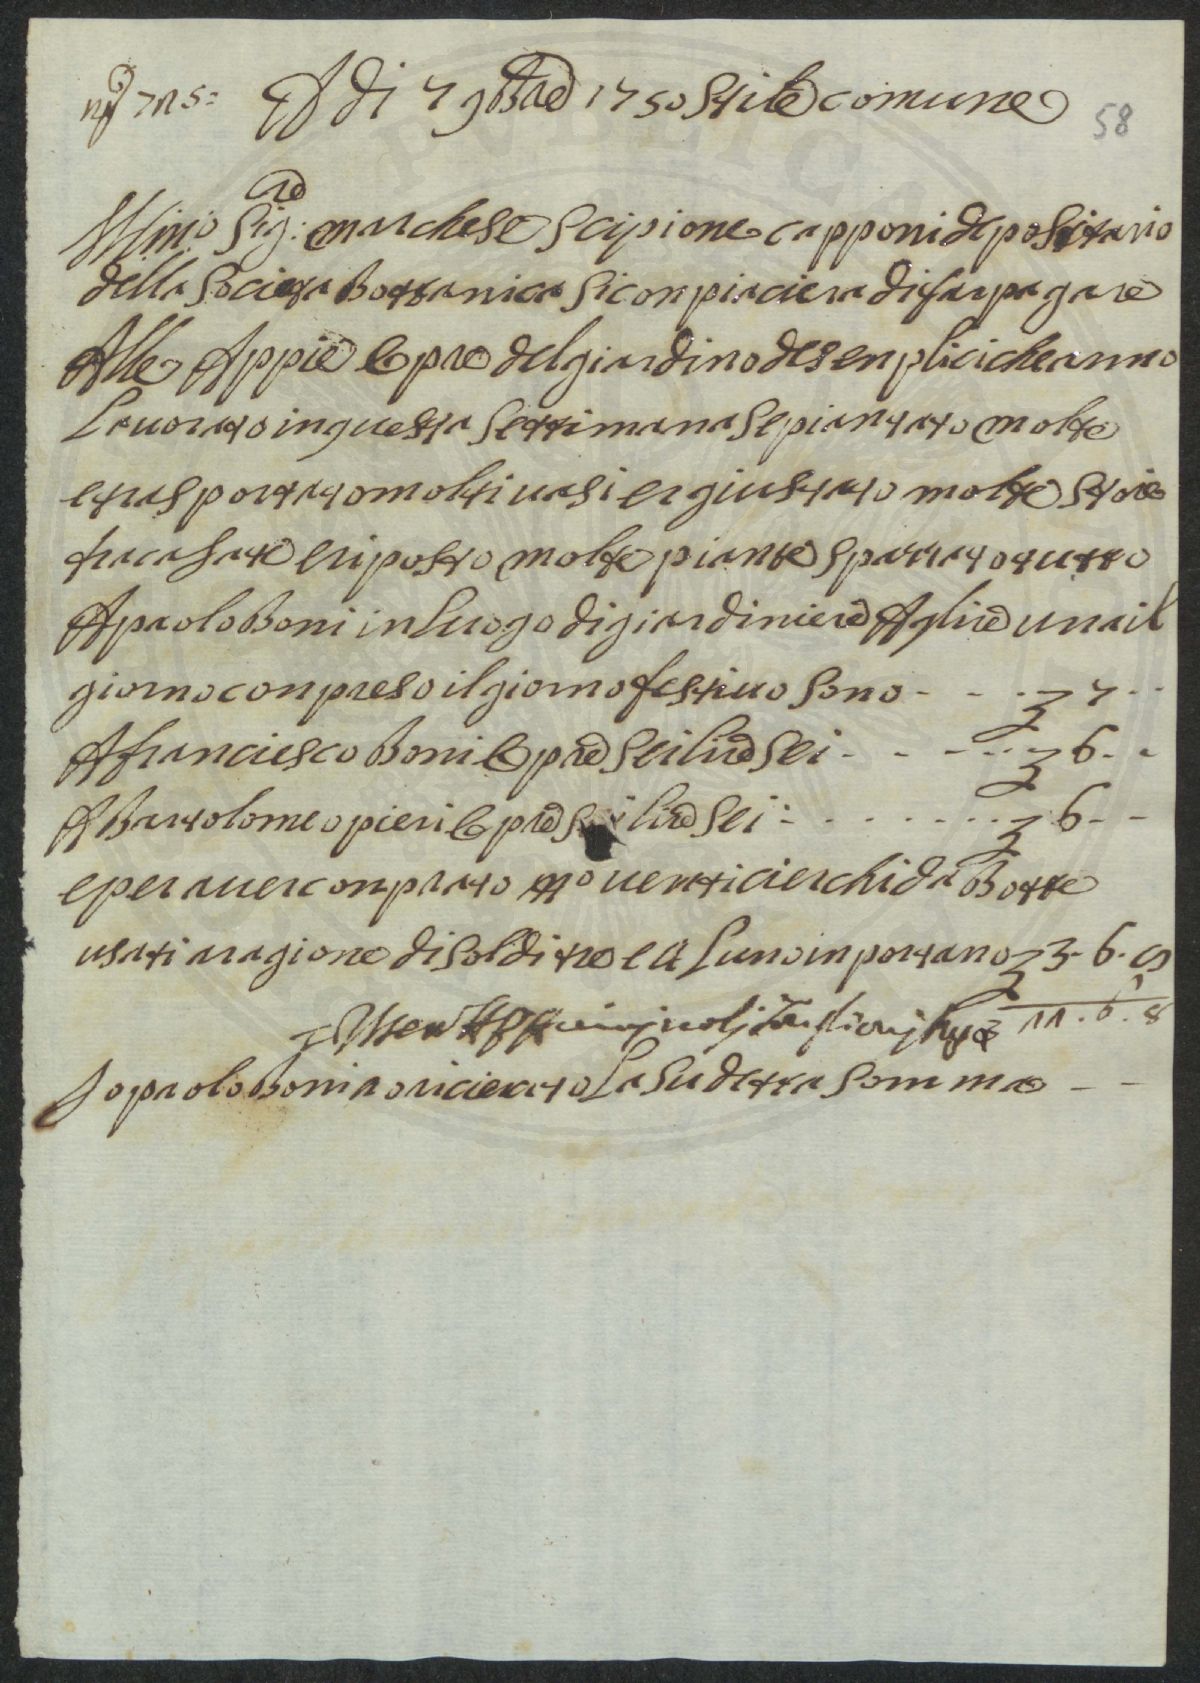 A di 7 9bre 1750 Stile comune
58
Illmo Sigre marchese Scipione capponi depositario
della Società Bottanica si conpiaciera di far pagare
Alle Appie Opre del giardino de senplici che anno
Lauorato in questa Settimana Se piantato molte
e trasportato molti uasi e giustato molte stoie
fracasate e riposto molte piante spazzato tutto
A paolo Boni in Luogo di giardiniere A lire una il
giorno conpreso il giorno festiuo sono - - - 7 - -
A franciesco Boni Opre sei lire sei - - - - 6 - -
A Bartolomeo pieri Opre sei lire sei - - - - 6 - -
e per auer conprato no uenti cierchi da Botte
usati a ragione di soldi tre e 4 L'uno inportano 3. 6. 8
6. 8
Io paolo Boni o riceuto La sudetta somma - -